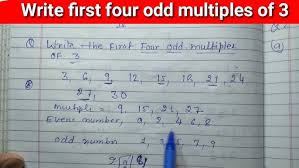 Write first four odd multiples of 3
Q Write the First Four odd multiples
of 3
(a)
3, 6, 9, 12, 15, 18, 21, 24
27, 30
multiple = 9, 15, 21, 27
Even number, 0, 2, 4, 6, 8
odd number 1, 3, 5, 7, 9